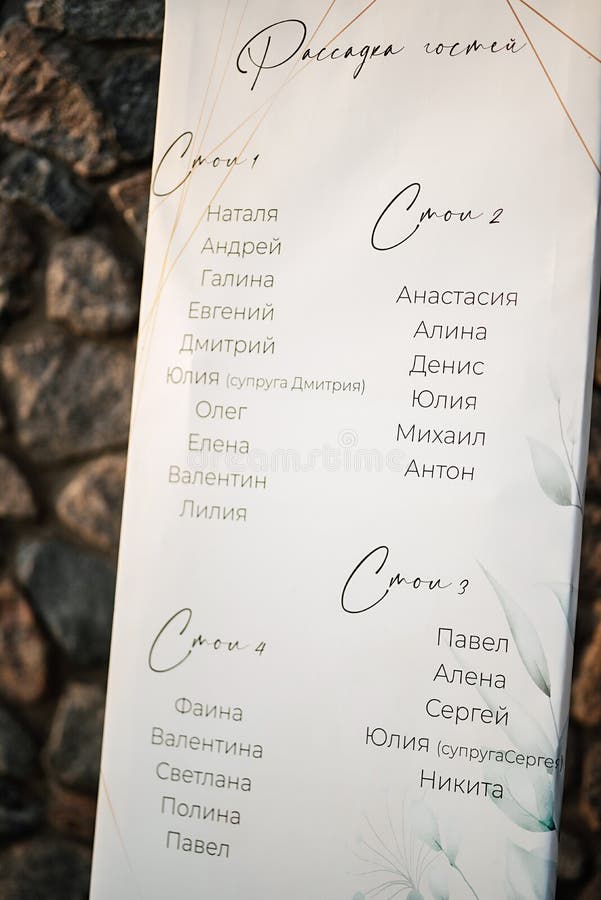 Рассадка гостей
Стол 1
Наталя
Андрей
Галина
Евгений
Дмитрий
Юлия (супруга Дмитрия)
Олег
Елена
Валентин
Лилия
Стол 2
Анастасия
Алина
Денис
Юлия
Михаил
Антон
Стол 3
Павел
Алена
Сергей
Юлия (супругаСергея)
Никита
Стол 4
Фаина
Валентина
Светлана
Полина
Павел
dreamstime.com